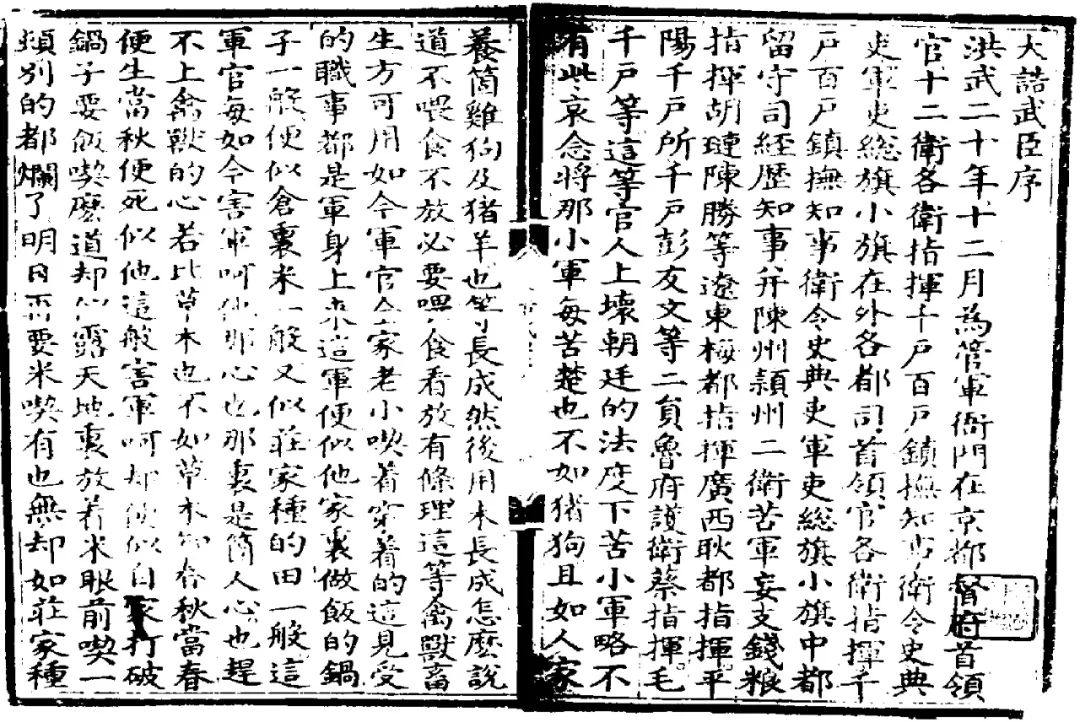 大誥武臣序
洪武二十年十二月為管軍衙門在京都督府首領
官十二衛各衛指揮千戶百戶鎮撫知事衛令史典
吏軍吏總旗小旗在外各都司首領官各衛指揮千
戶百戶鎮撫知事衛令史典吏軍吏総旗小旗中都
留守司經歷知事并陳州潁州二衛苦軍妄支錢粮
指揮胡璉陳勝等遼東梅都指揮廣西耿都指揮平
陽千戶所千戶彭友文等二負魯府護衛蔡指揮毛
千戶等這等官人上壞朝廷的法度下苦小軍略不
有些哀念將那小軍每苦楚也不如猪狗且如人家
養箇雞狗及猪羊也等長成然後用未長成怎麼說
道不喂食不放必要喂食看放有條理這等禽獸畜
生方可用如今軍官全家老小喫着穿着的這見受
的職事都是軍身上來這軍便似他家裏做飯的鍋
子一般便似倉裏米一般又似莊家種的田一般這
軍官每如今害軍呵他那心也那裏是箇人心也趕
不上禽獸的心若比草木也不如草木知春秋當春
便生當秋便死似他這般害軍呵却便似自家打破
鍋子要飯喫麼道却似露天地裏放着米眼前喫一
頓別的都爛了明日再要米喫有也無却如莊家種